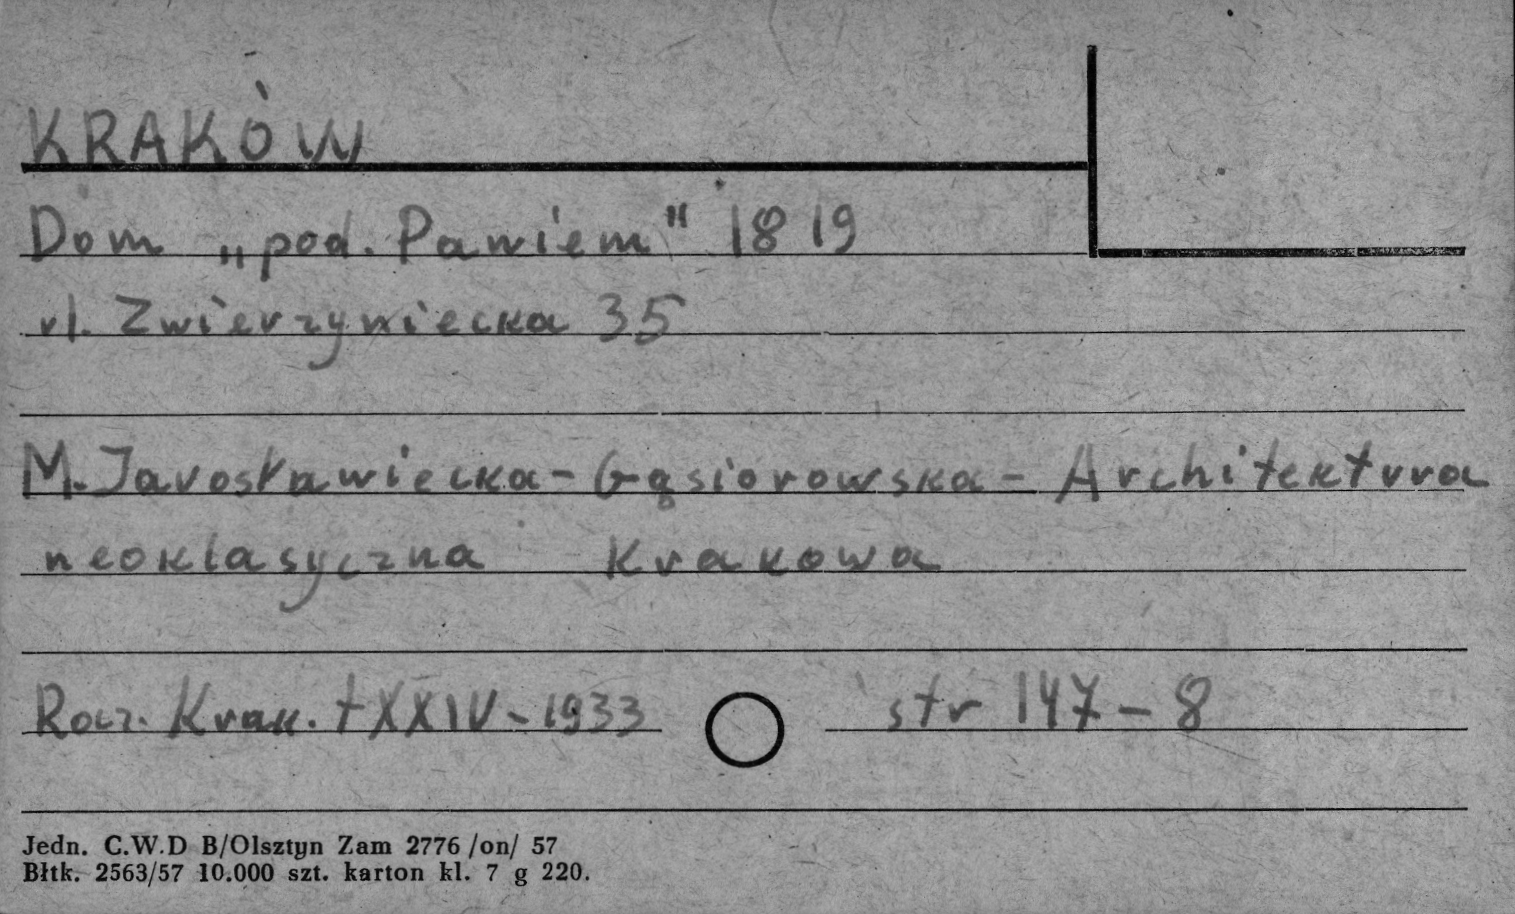 KRAKÓW
Dom „pod. Pawiem" 1819
ul. Zwierzyniecka 35
M. Jarosławiecka-Gąsiorowska - Architektura
neoklasyczna Krakowa
Rocz. Krak. t XXIV - 1933 str 147-8
Jedn. C.W.D B/Olsztyn Zam 2776 /on/ 57
Błtk. 2563/57 10.000 szt. karton kl. 7 g 220.